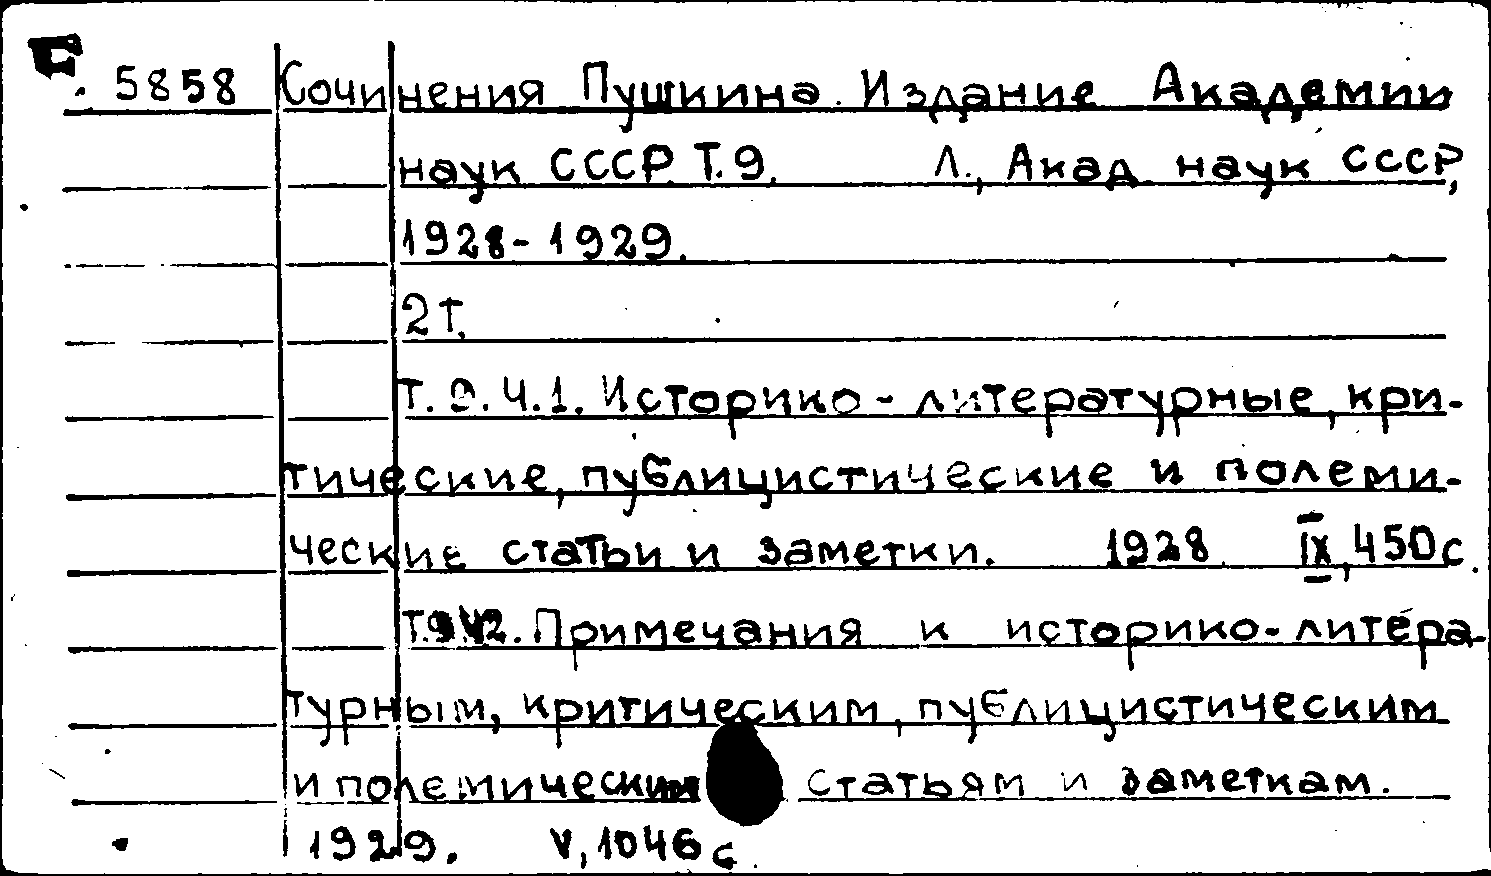 5858 Сочинения Пушкина. Издание Академии
наук СССР. Т.9. Л., Акад. наук СССР,
1928-1929.
2 т.
Т. 9. Ч.1. Историко-литературные, кри-
тические, публицистические и полеми-
ческие статьи и заметки. 1928. IX, 450 с.
Т.9.Ч.2. Примечания к историко-литера-
турным, критическим, публицистическим
и полемическим статьям и заметкам.
1929. V, 1046 с.